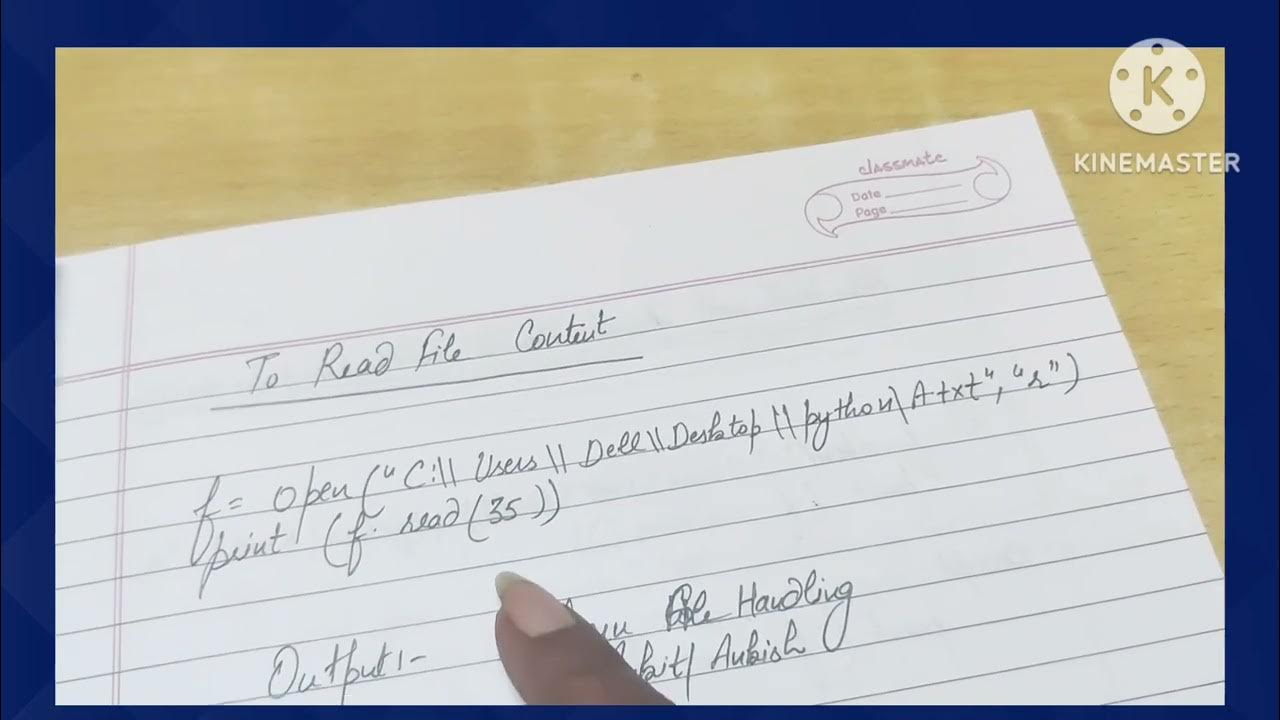 KINEMASTER
classmate
Date
Page
To Read file Content
f = open("C:\\ Users \\ Dell \\ Desktop \\ python\ A txt", "r")
print (f. read (35))
File Handling
Output:-